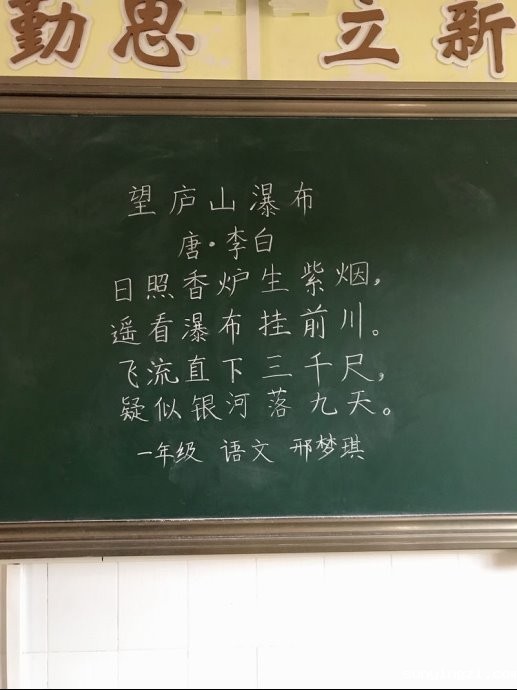 勤思 立新
望庐山瀑布
唐·李白
日照香炉生紫烟，
遥看瀑布挂前川。
飞流直下三千尺，
疑似银河落九天。
一年级 语文 邢梦琪